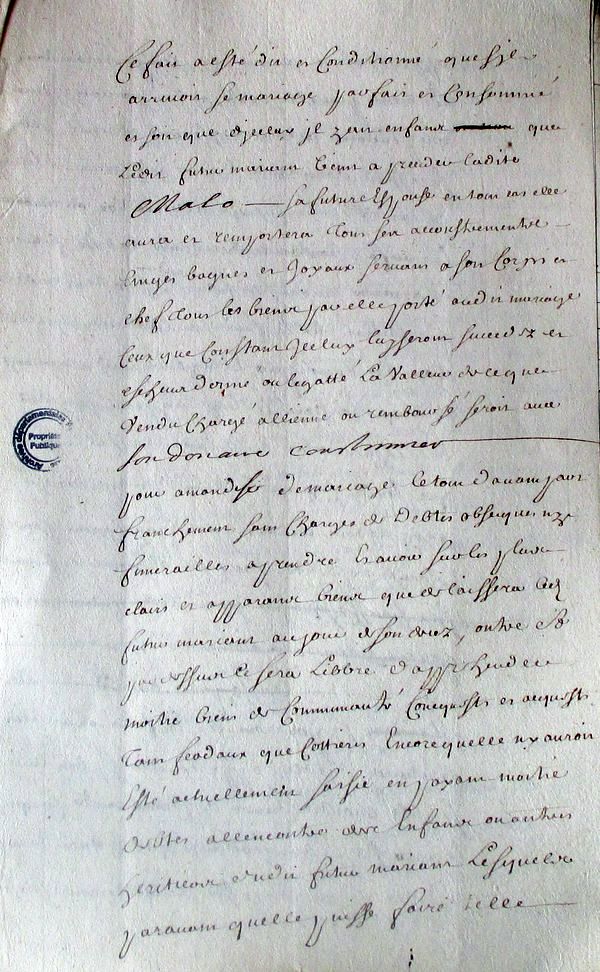 Ce fait a esté dit et Conditionné que s'jl
arrivoit le mariage parfait et Consommé
et soit que d'jceluy jl y ait enfans que
Ledit futur mariant vient a preceder ladite
Malo sa future Espouse en tout cas elle
aura et remportera tous ses accoustrements
linges bagues et Joyaux servans a son Corps et
chef tous les biens par elle porté audit mariage
Ceux que Constant Jceluy luy seront succedez et
escheus donné ou legatté La Valleur de ce que
Vendu Chargé alliené ou remboursé seroit avec
son douaire coustumier
pour amandise de mariage le tout d'avant part
franchement sans Charges de Debtes obseques ny
funerailles a prendre et avoir sur les plus
clairs et apparans biens que delaissera led
futur mariant au jour de son decez, outre et
par dessus ce sera Libbre d'apprehender
moitié biens de Communauté Conquests et acquests
Tant feodaux que Cottiers Encore quelle ny auroit
Esté actuellement saisie en payant moitié
debtes allencontre des Enfans ou autres
heritiers dudit futur mariant Lesquels
paravant quelle puisse faire telle
Archives départementales
Propriété
Publique